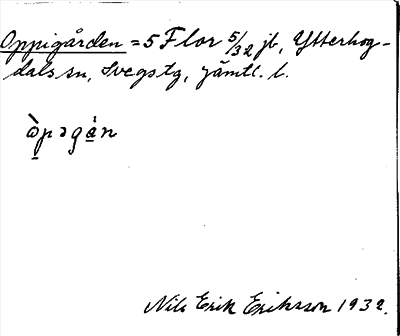 Oppigården = 5 Flor 5/32 jb, Ytterhog-
dals sn, Svegs tg, Jämtl. l.
o̱̊̀pəga̱̍n
Nils Erik Eriksson 1932.